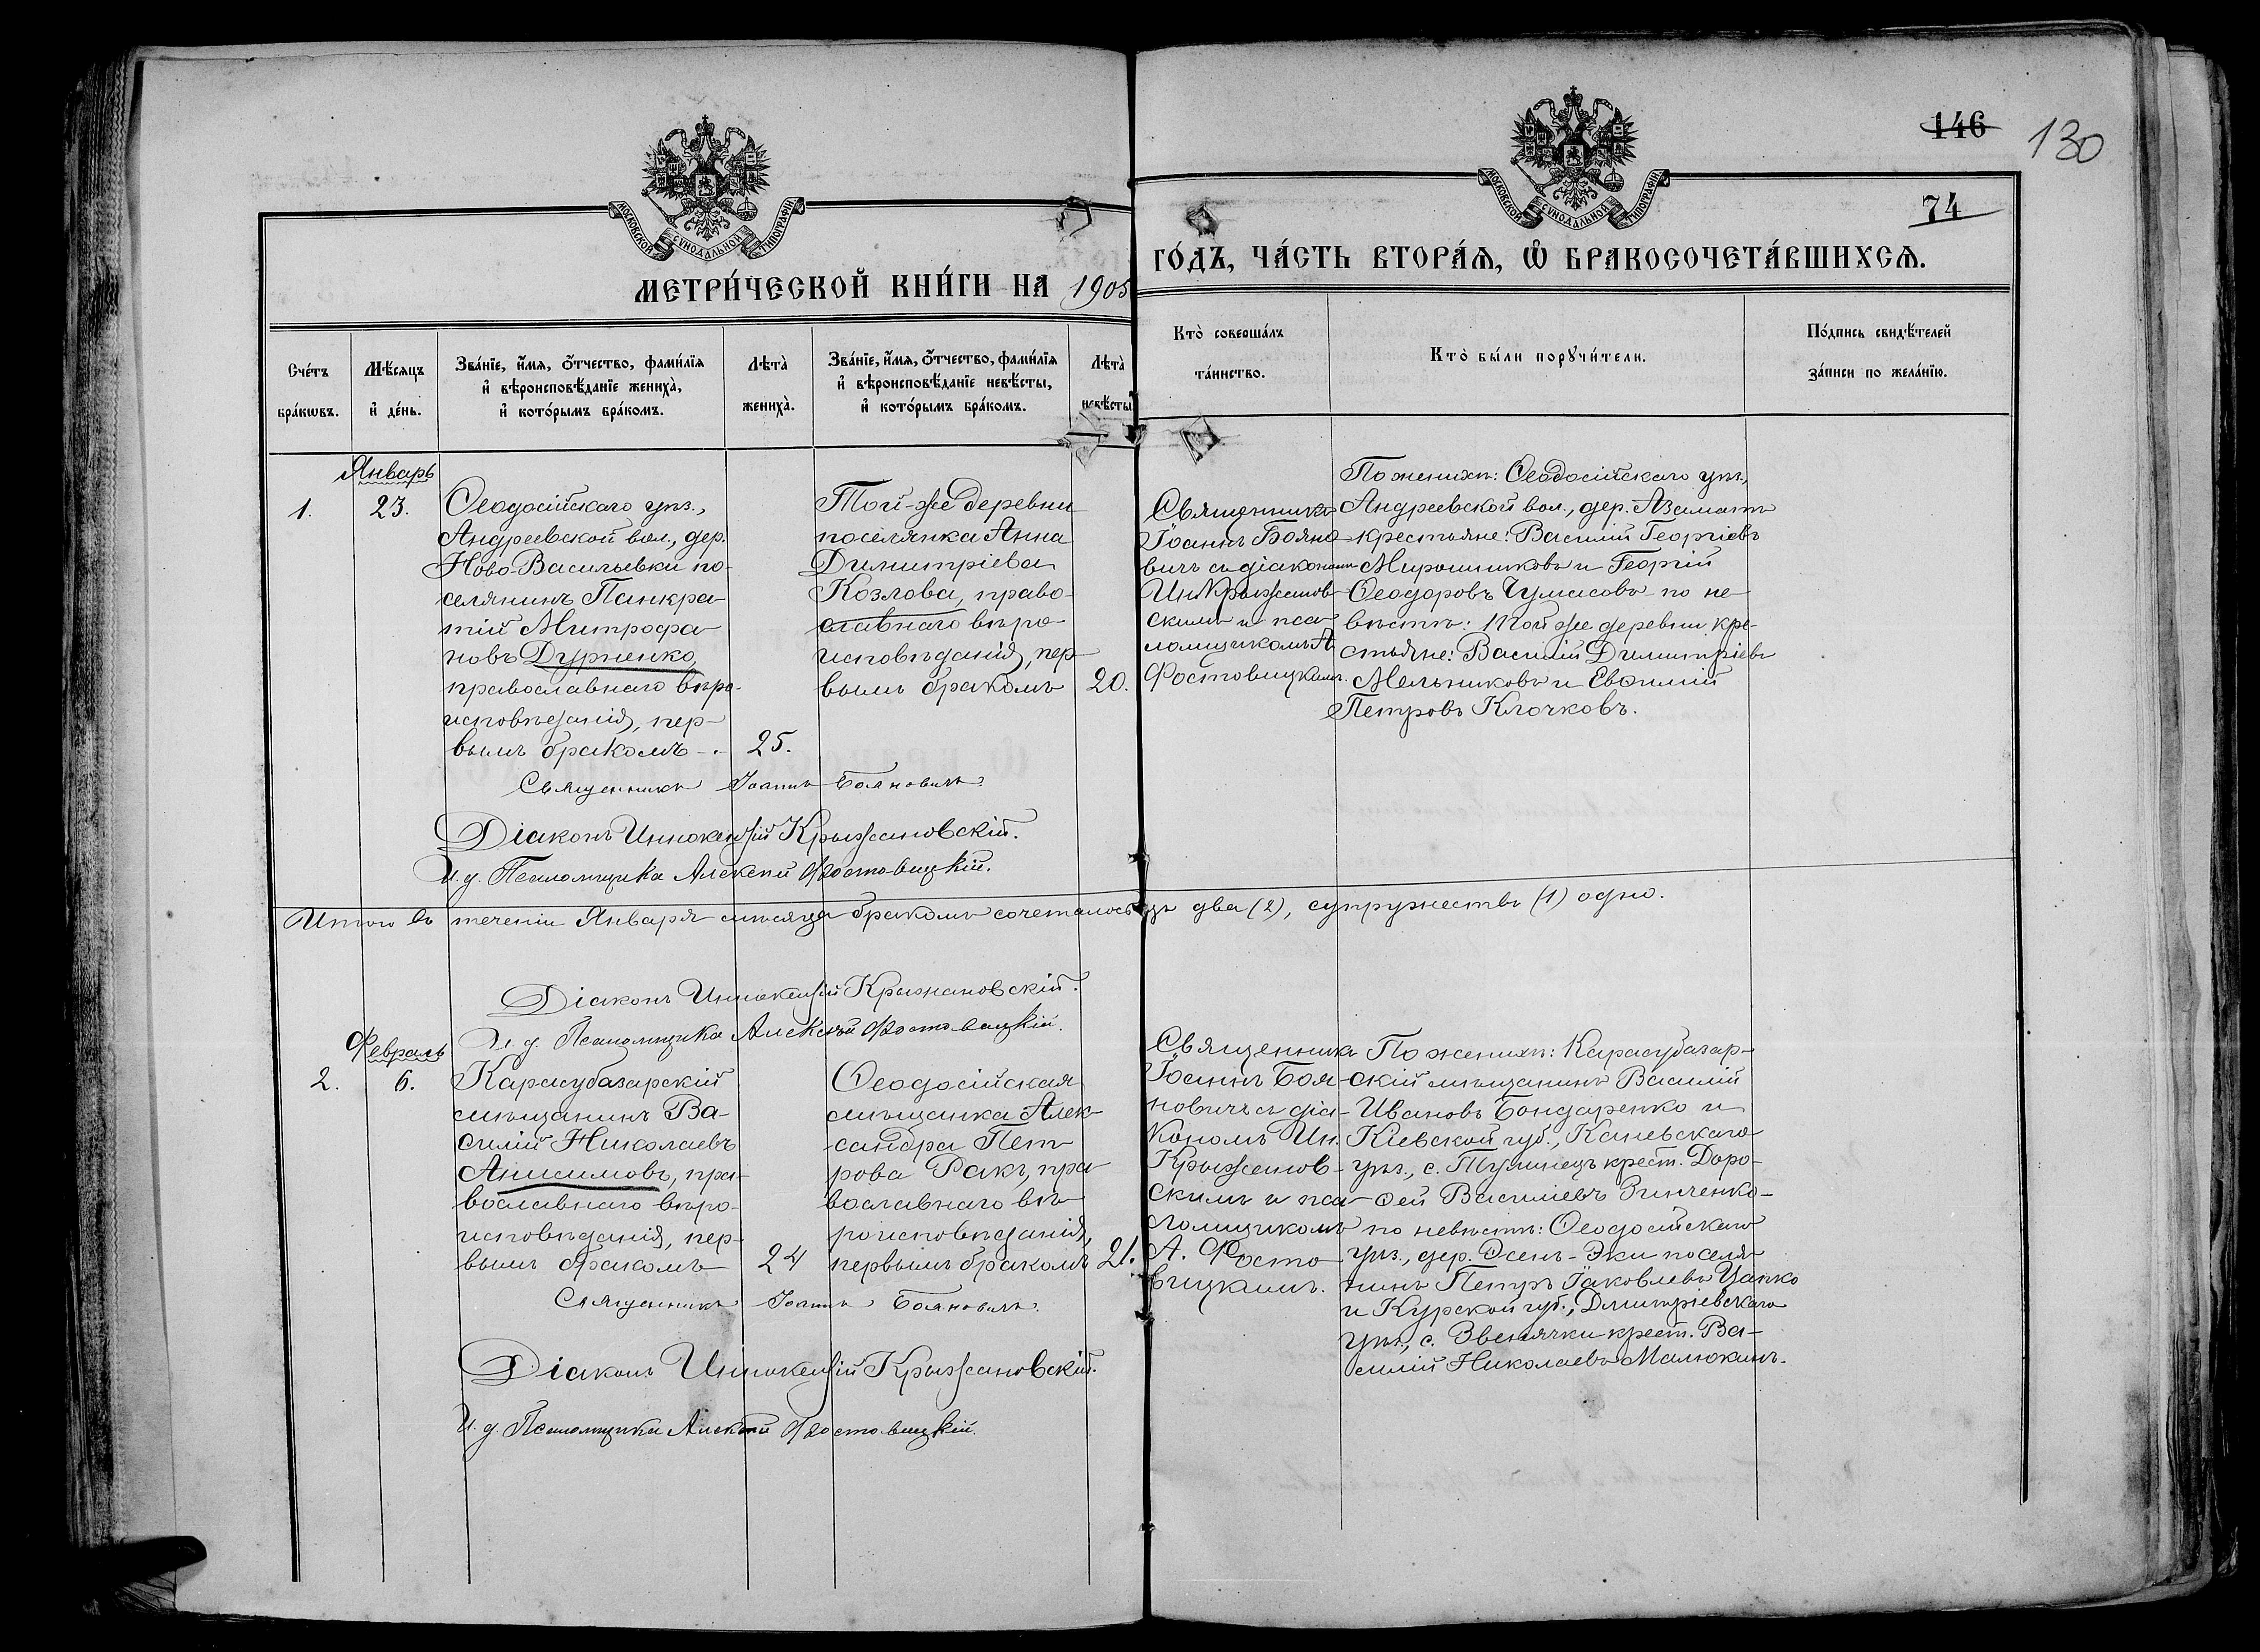 146
130
74
МОСКОВСКОЙ СѴНОДАЛЬНОЙ ТИПОГРАФІИ
МОСКОВСКОЙ СѴНОДАЛЬНОЙ ТИПОГРАФІИ
МЕТРИ́ЧЕСКОЙ КНИ́ГИ НА 1905
ГО́ДЪ, ЧА́СТЬ ВТОРА́Ѧ, Ѽ БРАКОСОЧЕТА́ВШИХСѦ.
Сче́тъ бра́кѡвъ.
Мѣ́сяцъ и де́нь.
Зва́нїе, и́мѧ, ѻ́тчество, фами́лїѧ
и вѣроисповѣ́данїе жениха̀,
и кото́рымъ бра́комъ.
Лѣта̀ жениха̀.
Зва́нїе, и́мѧ, ѻ́тчество, фами́лїѧ
и вѣроисповѣ́данїе невѣ́сты,
и кото́рымъ бра́комъ.
Лѣта̀ невѣ́сты.
Кто̀ соверша́лъ
та́инство.
Кто̀ бы́ли порꙋчи́тели.
По́дпись свидѣ́телей
за́писи по жела́нїю.
Январь
1.
23.
Ѳеодосійскаго уѣз.,
Андреевской вол., дер.
Ново-Васильевки по-
селянинъ Панкра-
тій Митрофа-
новъ Дурненко,
православнаго вѣро-
исповѣданія, пер-
вымъ бракомъ -.
25.
Той-же деревни
поселянка Анна
Димитріева
Козлова, право-
славнаго вѣро-
исповѣданія, пер-
вымъ бракомъ
20.
Священникъ
Іоаннъ Бояно-
вичъ съ діакономъ
Ин. Крыжанов-
скимъ и пса-
ломщикомъ А.
Фостовицкимъ.
По женихѣ: Ѳеодосійскаго уѣз.,
Андреевской вол., дер. Азаматъ
крестьяне: Василій Георгіевъ
Мирошниковъ и Георгій
Ѳеодоровъ Чумасовъ - по не-
вѣстѣ: той же деревни кре-
стьяне: Василій Димитріевъ
Мельниковъ и Евѳимій
Петровъ Клочковъ.
Священникъ Іоаннъ Бояновичъ.
Діаконъ Иннокентій Крыжановскій.
И. д. Псаломщика Алексѣй Фостовицкій.
Итого въ теченіи Января мѣсяца бракомъ сочеталось два (2), супружествъ (1) одно.
Діаконъ Иннокентій Крыжановскій.
И. д. Псаломщика Алексѣй Фостовицкій.
Февраль
2.
6.
Карасубазарскій
мѣщанинъ Ва-
силій Николаевъ
Анисимовъ, пра-
вославнаго вѣро-
исповѣданія, пер-
вымъ бракомъ
24
Ѳеодосійская
мѣщанка Алек-
сандра Пет-
рова Ракъ, пра-
вославнаго вѣ-
роисповѣданія,
первымъ бракомъ
21.
Священникъ
Іоаннъ Боя-
новичъ съ діа-
кономъ Ин.
Крыжанов-
скимъ и пса-
ломщикомъ
А. Фосто-
вицкимъ.
По женихѣ: Карасубазар-
скій мѣщанинъ Василій
Ивановъ Бондаренко и
Кіевской губ., Каневскаго
уѣз., с. Тулинецъ крест. Доро-
ѳей Василіевъ Зинченко -
по невѣстѣ: Ѳеодосійскаго
уѣз., дер. Осенъ-Эки поселя-
нинъ Петръ Іаковлевъ Цапко
и Курской губ., Дмитріевскаго
уѣз., с. Звенячки крест. Ва-
силій Николаевъ Малюкинъ.
Священникъ Іоаннъ Бояновичъ.
Діаконъ Иннокентій Крыжановскій.
И. д. Псаломщика Алексѣй Фостовицкій.